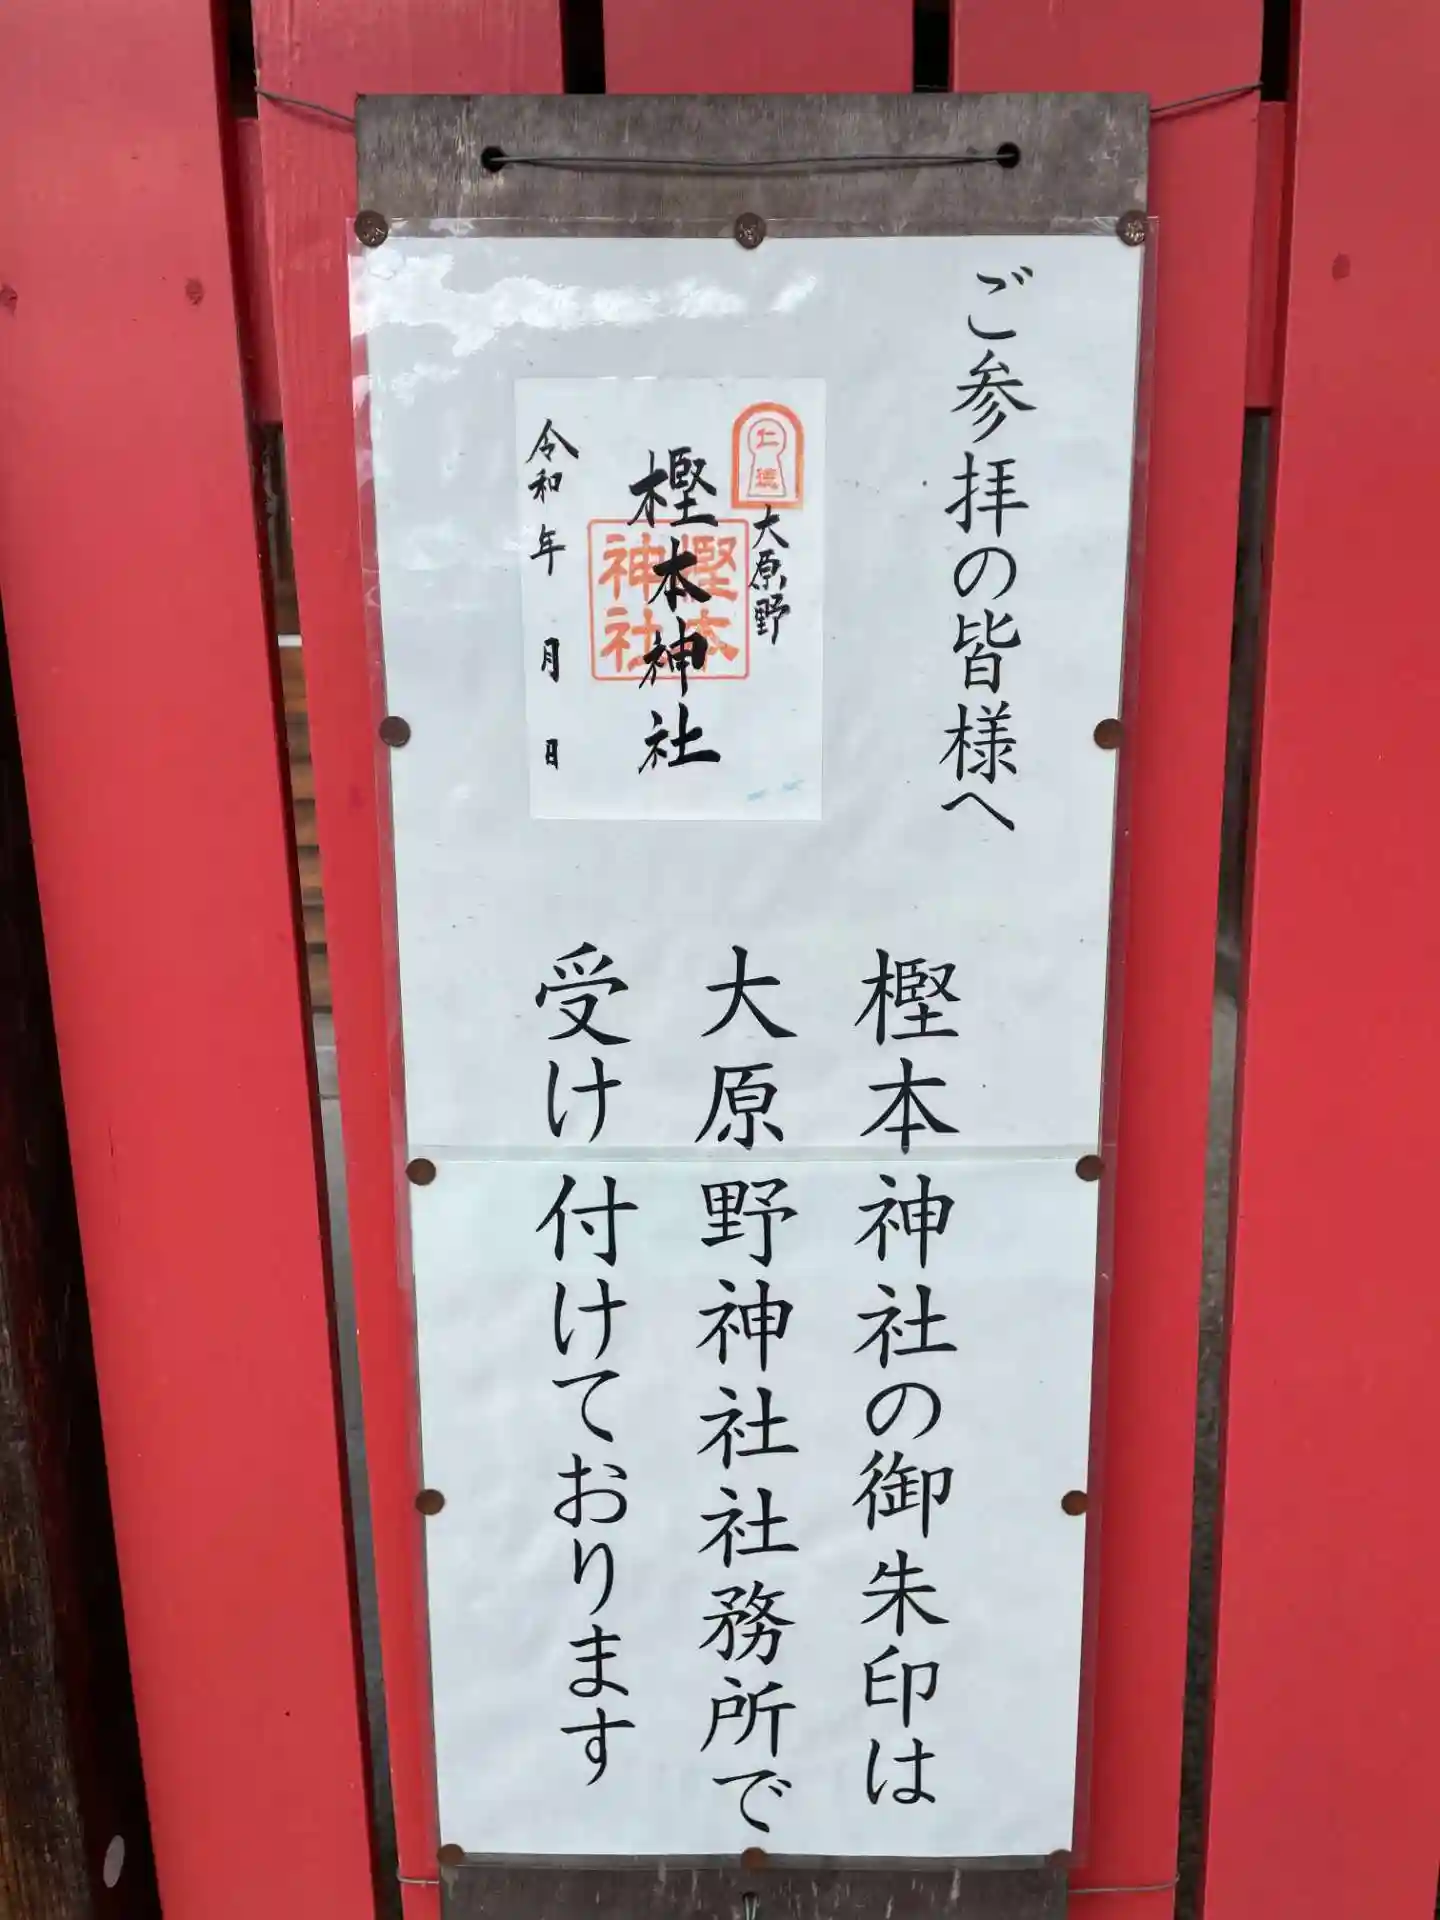 ご参拝の皆様へ
仁徳
大原野
樫本神社
樫本神社
令和 年 月 日
樫本神社の御朱印は
大原野神社社務所で
受け付けております